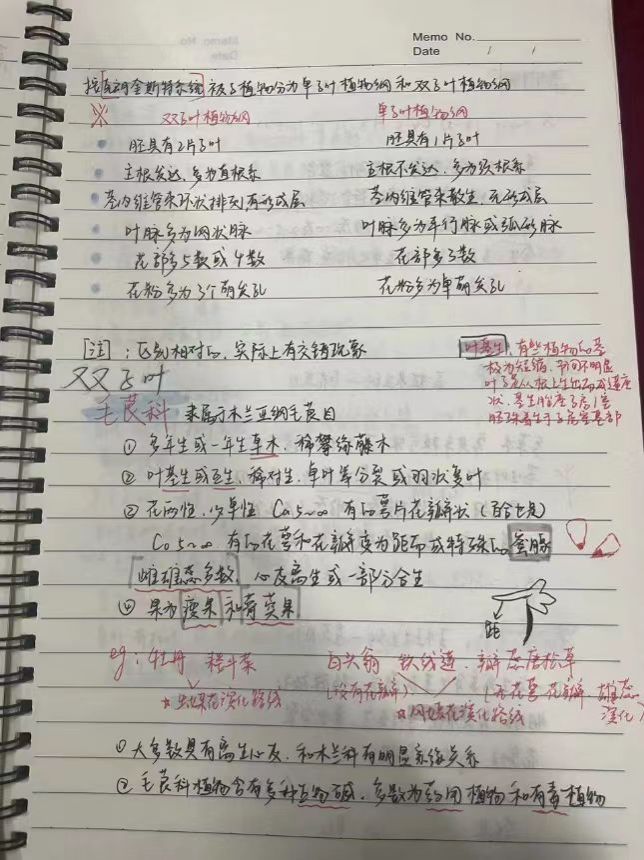 Memo No.
Date / /
按克朗奎斯特系统 被子植物分为单子叶植物纲和双子叶植物纲
※ 双子叶植物纲 单子叶植物纲
胚具有2片子叶 胚具有1片子叶
主根发达，多为直根系 主根不发达，多为须根系
茎内维管束环状排列有形成层 茎内维管束散生，无形成层
叶脉多为网状脉 叶脉多为平行脉或弧形脉
花部多5数或4数 花部多3数
花粉多为3个萌发孔 花粉多为单萌发孔
[注]：区别相对的，实际上有交错现象
叶基生，有些植物的茎
极为短缩，节间不明显
叶子是从根上生出而成莲座
状，基生胎座子房1室
胚珠着生于子房室基部
双子叶
毛茛科 隶属于木兰亚纲毛茛目
① 多年生或一年生草木，稀攀缘藤木
② 叶基生或互生，稀对生，单叶掌分裂或羽状复叶
③ 花两性，少单性 Ca 5~∞ 有的萼片花瓣状
Co 5~∞ 有的花萼和花瓣变为距而成特殊的蜜腺
雌雄蕊多数，心皮离生或一部分合生
④ 果为瘦果和蓇葖果
距
eg：牡丹 耧斗菜 白头翁 铁线莲，瓣蕊唐松草
☆虫媒花演化路线 (没有花瓣) (无花萼花瓣 雄蕊
☆风媒花演化路线 演化)
① 大多数具有离生心皮，和木兰科有明显亲缘关系
② 毛茛科植物含有多种生物碱，多数为药用植物和有毒植物